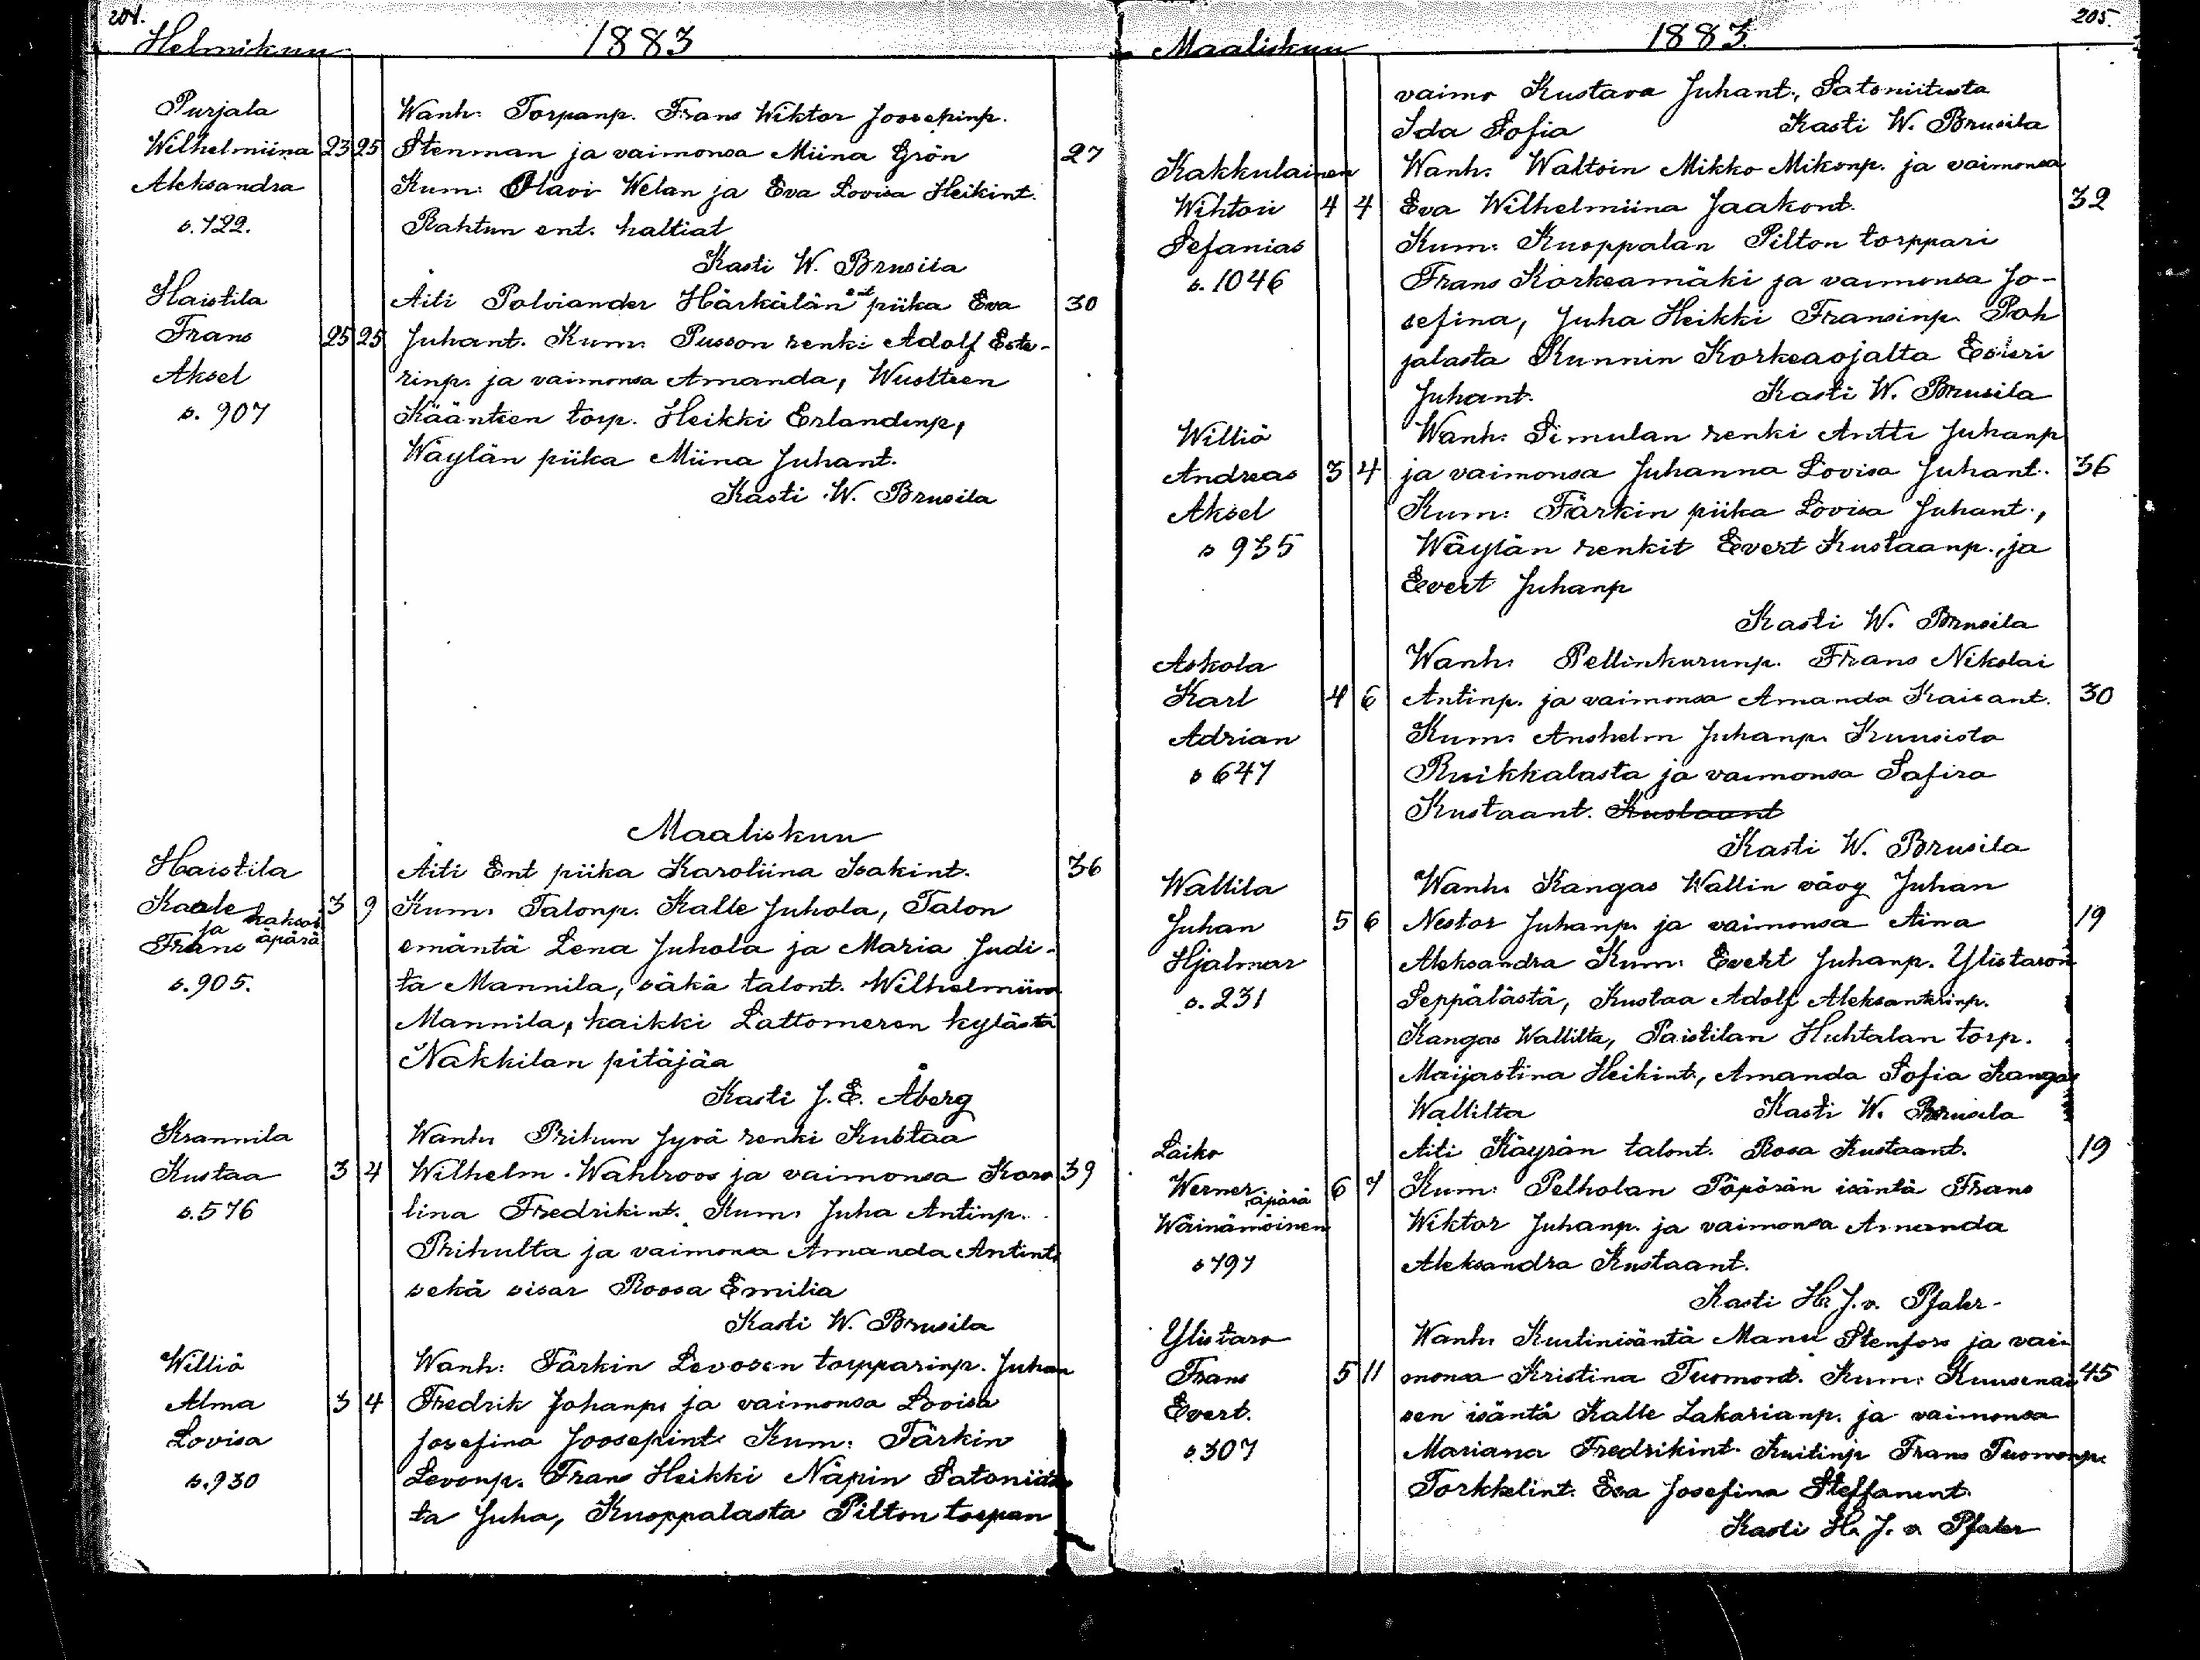 204.
Helmikuu 1883
Purjala
Wanh: Torpanp. Frans Wiktor Joosepinp.
Wilhelmiina 23 25 Stenman ja vaimonsa Miina Grön 27
Aleksandra Kum: Olavi Welan ja Eva Lovisa Heikint.
s. 722. Rahtun ent. haltiat
Kasti W. Brusila
Haistila Äiti Polviander Härkälän ent piika Eva 30
Frans 25 25 Juhant. Kum: Pusson renki Adolf Este-
Aksel rinp. ja vaimonsa Amanda, Wuolteen
s. 907 Käänteen torp. Heikki Erlandinp,
Wäylän piika Miina Juhant.
Kasti W. Brusila
Maaliskuu
Haistila Äiti Ent piika Karoliina Isakint. 36
Kaale 3 9 Kum: Talonp. Kalle Juhola, Talon
ja kaksoi
Frans äpärä emäntä Lena Juhola ja Maria Judi-
s. 905. ta Mannila, säkä talont. Wilhelmiina
Mannila, kaikki Lattomeren kylästä
Nakkilan pitäjäa
Kasti J. E. Åberg
Krannila Wanh: Prihun Jyvä renki Kustaa
Kustaa 3 4 Wilhelm Wahlroos ja vaimonsa Karo 39
s. 576 lina Fredrikint. Kum: Juha Antinp.
Prihulta ja vaimonsa Amanda Antint.
sekä sisar Roosa Emilia
Kasti W. Brusila
Williö Wanh: Färkin Levosen torpparinp. Juhan
Alma 3 4 Fredrik Johanp. ja vaimonsa Lovisa
Lovisa Josefina Joosepint. Kum: Färkin
s. 930 Levonp. Frans Heikki Näpin Satoniitu
ta Juha, Kuoppalasta Pilton torpan
205.
Maaliskuu 1883.
vaimo Kustava Juhant., Satoniitusta
Ida Sofia Kasti W. Brusila
Kakkulainen Wanh: Waltoin Mikko Mikonp. ja vaimonsa
Wihtori 4 4 Eva Wilhelmiina Jaakont. 32
Sefanias Kum: Kuoppalan Pilton torppari
s. 1046 Frans Korkeamäki ja vaimonsa Jo-
sefina, Juha Heikki Fransinp. Poh
jalasta Kunnin Korkeaojalta Esieri
Juhant. Kasti W. Brusila
Williö Wanh: Simulan renki Antti Juhanp
Andreas 3 4 ja vaimonsa Juhanna Lovisa Juhant. 36
Aksel Kum: Färkin piika Lovisa Juhant.,
s 935 Wäylän renkit Evert Kustaanp., ja
Evert Juhanp
Kasti W. Brusila
Askola Wanh: Pellinkurunp. Frans Nikolai
Karl 4 6 Antinp. ja vaimonsa Amanda Kaisant. 30
Adrian Kum: Anshelm Juhanp. Kuusisto
s 647 Ruikkalasta ja vaimonsa Safira
Kustaant. Kustaant
Kasti W. Brusila
Wallila Wanh: Kangas Wallin vävy Juhan
Juhan 5 6 Nestor Juhanp. ja vaimonsa Aina 19
Hjalmar Aleksandra Kum: Evert Juhanp. Ylistaron
s. 231 Seppälästä, Kustaa Adolf Aleksanterinp.
Kangas Wallilta, Paistilan Huhtalan torp.
Maijastina Heikint., Amanda Sofia Kangas
Wallilta Kasti W. Brusila
Laiko Äiti Käyrän talont. Rosa Kustaant. 19
Werner äpärä 6 7 Kum: Pelholan Pöpörän isäntä Frans
Wäinämöinen Wiktor Juhanp. ja vaimonsa Amanda
s 797 Aleksandra Kustaant.
Kasti H. J. v. Pfaler
Ylistaro Wanh: Kuitinisäntä Manu Stenfors ja vai-
Frans 5 11 monsa Kristina Tuomont. Kum: Kuusenai 45
Evert. sen isäntä Kalle Sakarianp. ja vaimonsa
s. 307 Mariana Fredrikint. Kuitinp Frans Tuomonp.
Torkkelint. Eva Josefina Steffanint.
Kasti H. J. v. Pfaler